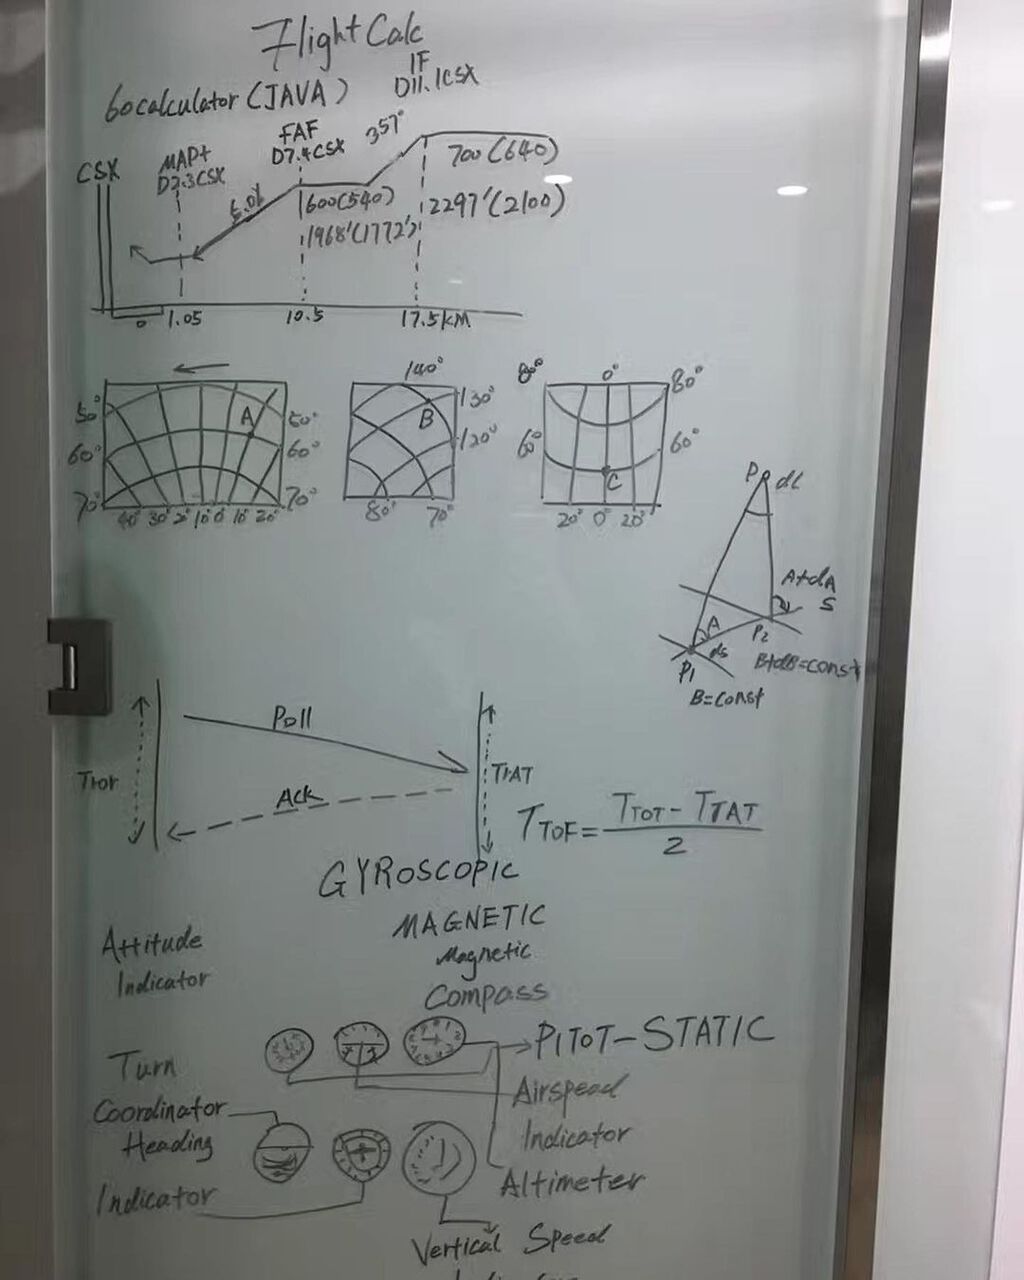 Flight Calc
60calculator(JAVA)
IF
D11.1CSX
CSX
MAPt
D7.3CSX
FAF
D7.4CSX
357°
700(640)
1600(540)
2297'(2100)
1968'(1772')
0 1.05 10.5 17.5KM
140°
80° 0° 80°
50° A 50°
130°
B
60° 60°
120°
60° 60°
C
70° 70°
40° 30° 2° 10° 0° 10° 20°
80° 70°
20° 0° 20°
P dl
A+dA
S
A
P2
ds
P1
B+dB=const
B=const
Poll
TTAT
Ack
TTOF = TTOT - TTAT
2
GYROSCOPIC
MAGNETIC
Attitude
Indicator
Magnetic
Compass
PITOT-STATIC
Turn
Coordinator
Airspead
Indicator
Heading
Indicator
Altimeter
Vertical Speed